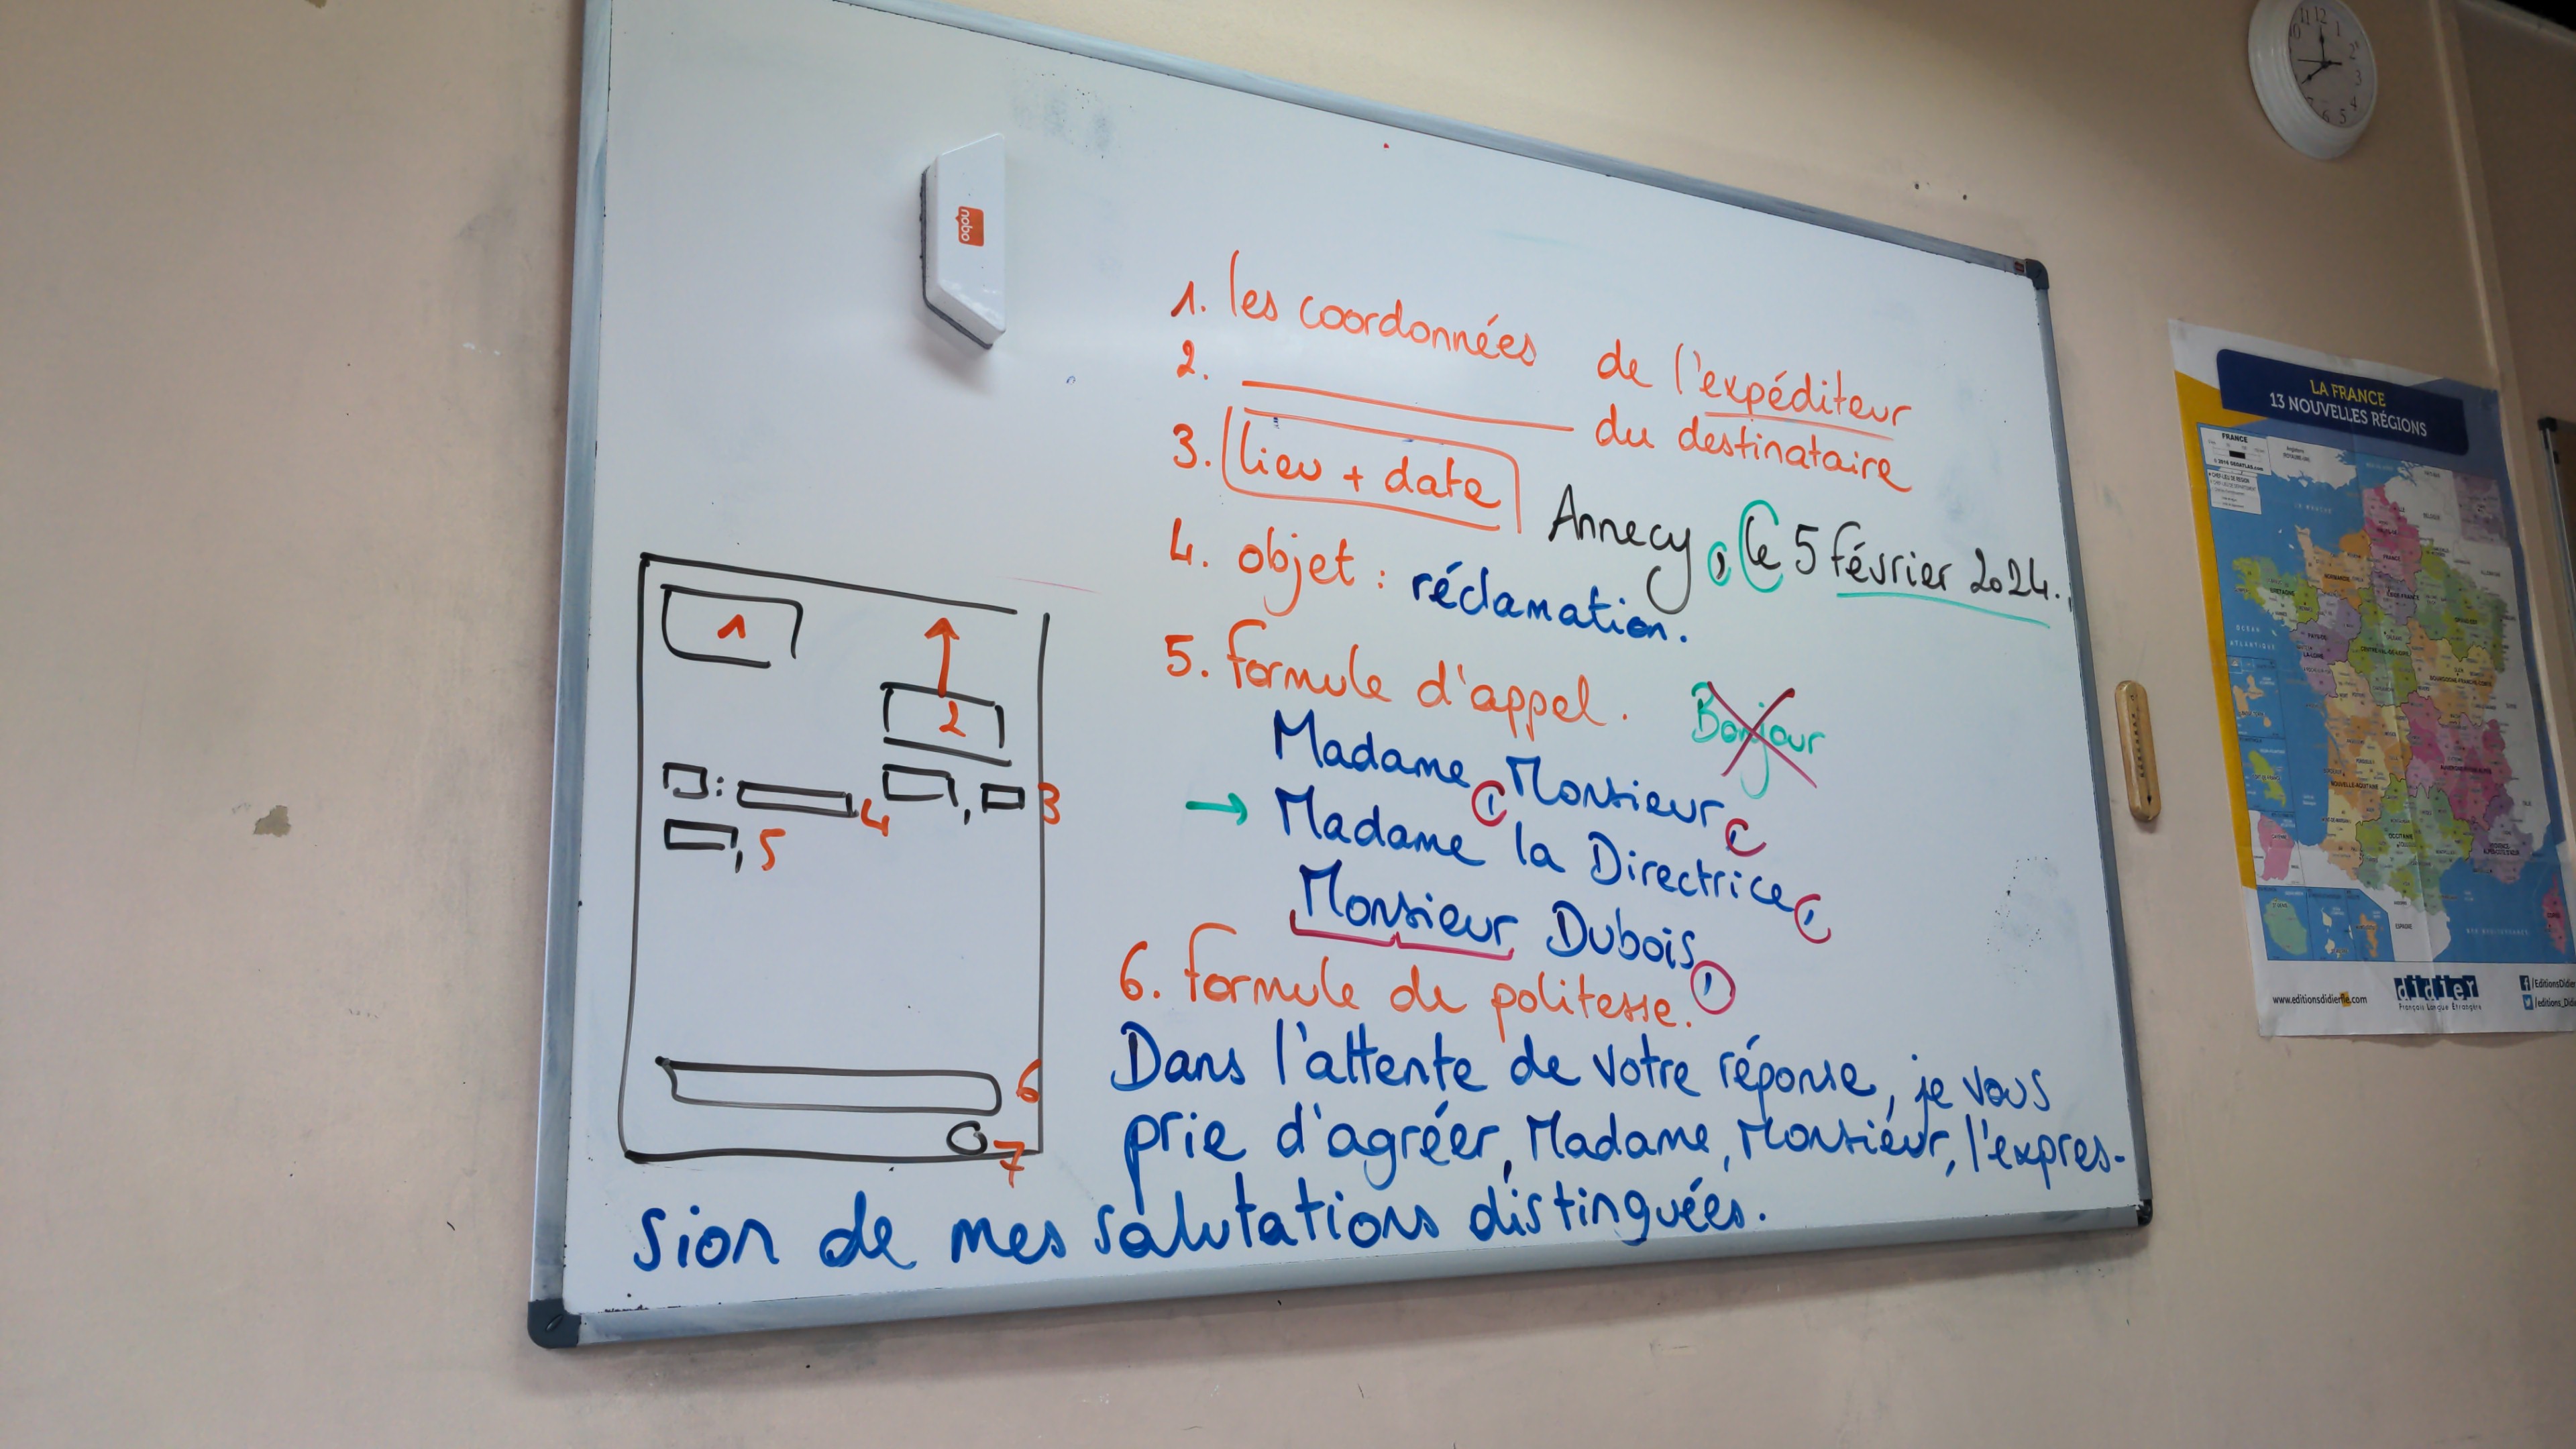 nobo
1. les coordonnées de l'expéditeur
2. ____ du destinataire
3. lieu + date
Annecy, le 5 février 2024.
4. objet : réclamation.
5. formule d'appel.
Bonjour
Madame, Monsieur,
→ Madame la Directrice,
Monsieur Dubois,
6. formule de politesse.
Dans l'attente de votre réponse, je vous
prie d'agréer, Madame, Monsieur, l'expres-
sion de mes salutations distinguées.
1
2
3
4
5
6
7
LA FRANCE
13 NOUVELLES RÉGIONS
FRANCE
OCÉAN
ATLANTIQUE
www.editionsdidierfle.com
didier
Français Langue Étrangère
/EditionsDidier
/editions_Didi
11 12 1 2 3 4 5 6 7